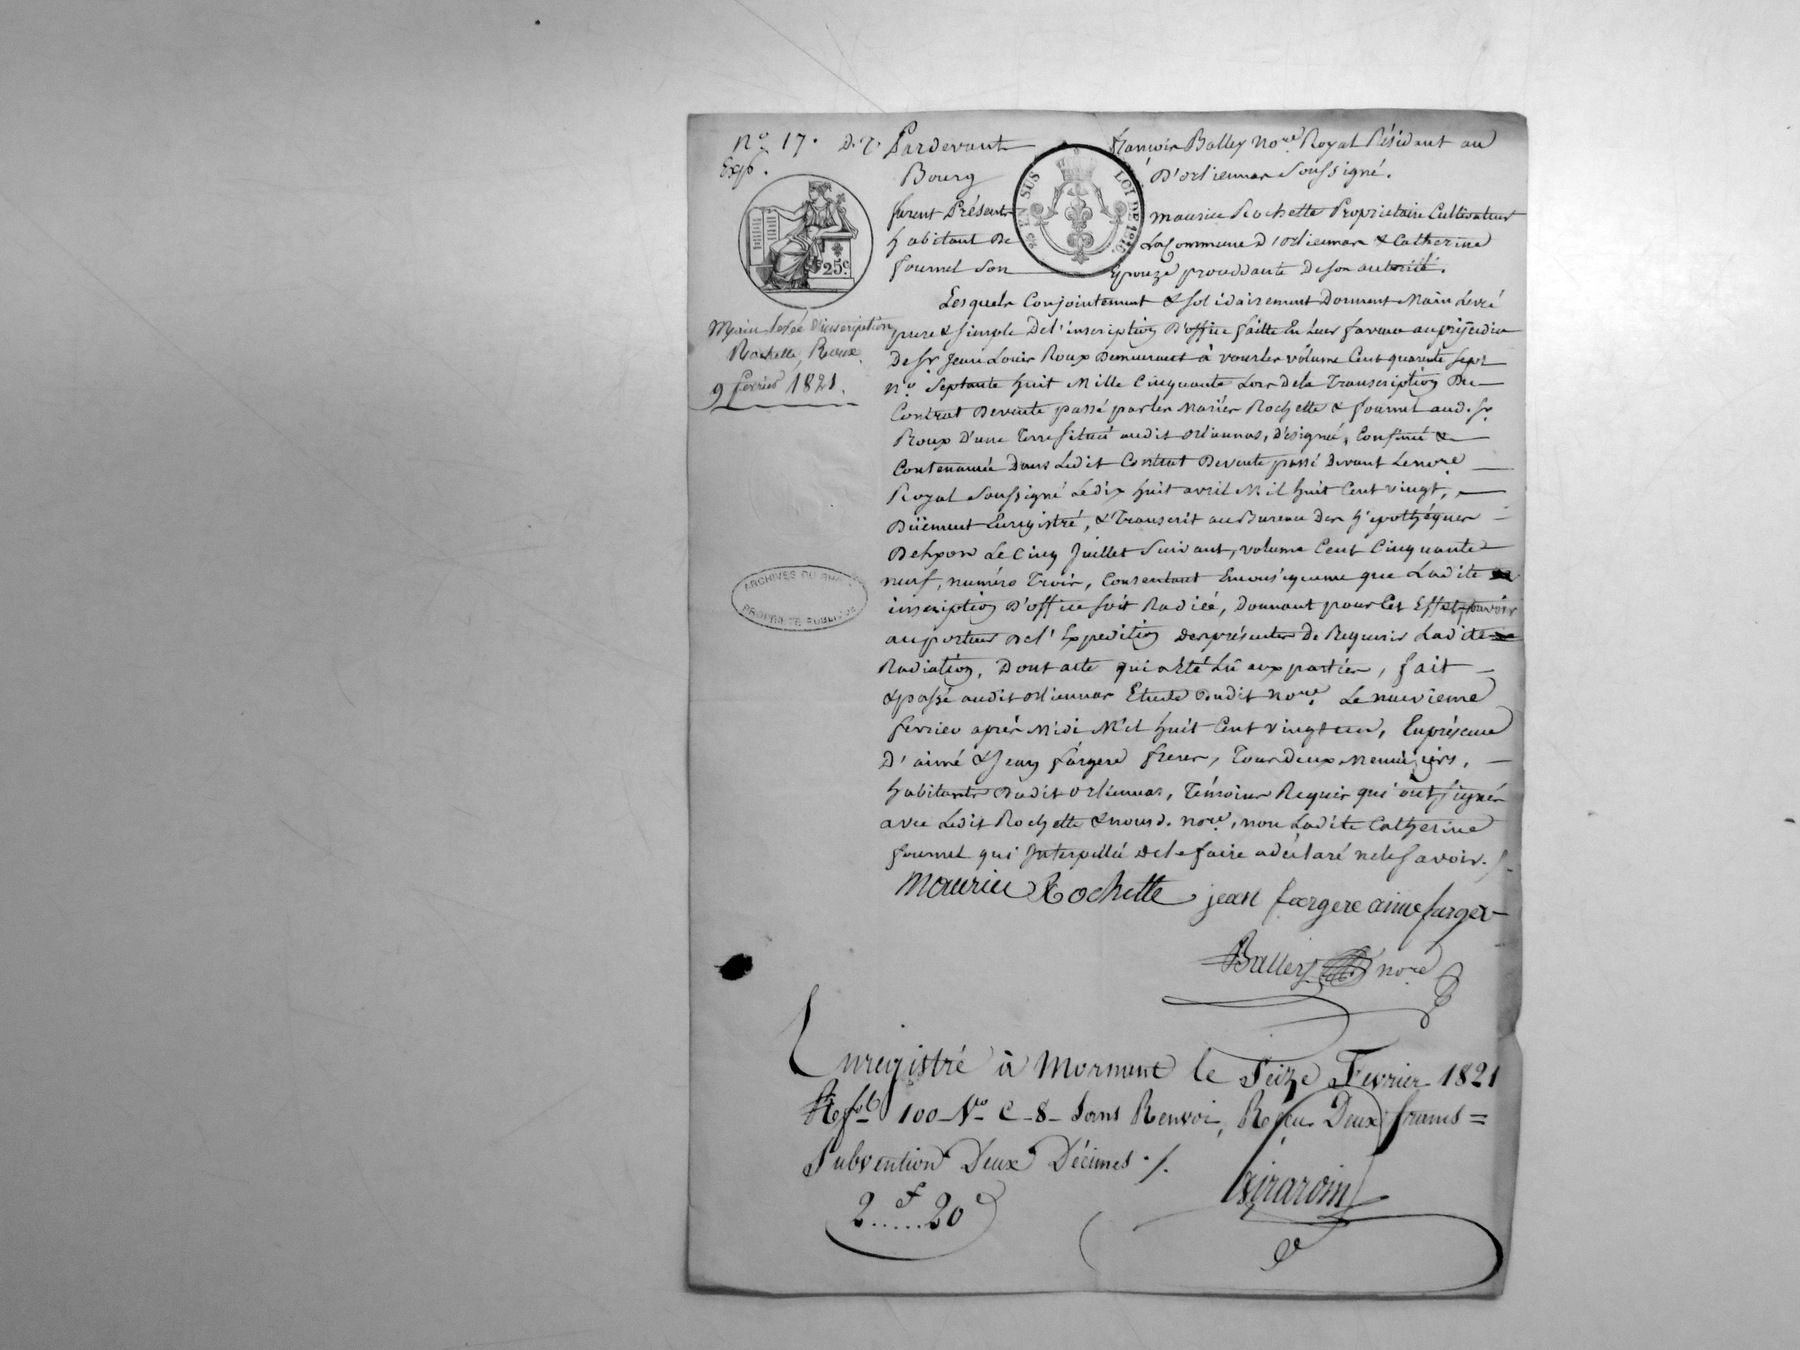 N.o 17. D.T. Pardevant françois Balley No.re Royal Résidant au
Exp.
Bourg D'orliennas Soussigné.
furent Présents maurice Rochette Propriétaire Cultivateur
habitant De La Commune D'orliennas & Catherine
fournel Son Epouze proceddante De son autorité.
25 EN SUS
LOI DE 1816
25c
Lesquels Conjointement & solidairement Donnent Main Levée
Main Levée d'inscription
Rochette, Roux.
9 février 1821.
pure & simple De l'inscription D'office faitte En Leur faveur au préjudice
De Sr. Jean Louis Roux Demeurant à vourles volume Cent quarante sept
n.o Septante huit Mille Cinquante Lors de la Transcription Du
Contrat De vente passé par les Mariés Rochette & fournel aud. Sr.
Roux D'une Terre située audit orliennas, désignée, Confinée &
Contenancée Dans Ledit Contrat De vente passé devant Le no.re
Royal Soussigné Le dix huit avril Mil huit Cent vingt,
Düement Enregistré, & Transcrit au Bureau Des hypothéques
De Lyon Le Cinq Juillet Suivant, volume Cent Cinquante
neuf, numéro Trois, Consentant En conséquence que Ladite
inscription D'office soit Radiée, Donnant pour Cet Effet pouvoir
au porteur De l'Expedition des présentes De Requerir Ladite
Radiation, Dont acte qui a Eté Lû aux parties, fait
& passé audit orliennas Etude Dudit no.re Le neuvieme
février après Midi Mil huit Cent vingt un, En présence
D'aimé & Jean fargere freres, Tous Deux Menuiziers,
habitants Dudit orliennas, Témoins Requis qui ont signés
avec Ledit Rochette & nous d. no.re, non Ladite Catherine
fournel qui Interpellée De le faire a déclaré ne le savoir.
Maurice Rochette jean fargere aime farger
Balley no.re
ARCHIVES DU RHÔNE
PROPRIÉTÉ PUBLIQUE
Enregistré à Mornant le Seize Fevrier 1821
fol. 100 V.o C. 8 Sans Renvoi, Reçu Deux francs =
Subvention Deux Décimes ./.
2f.....20c
Girardin